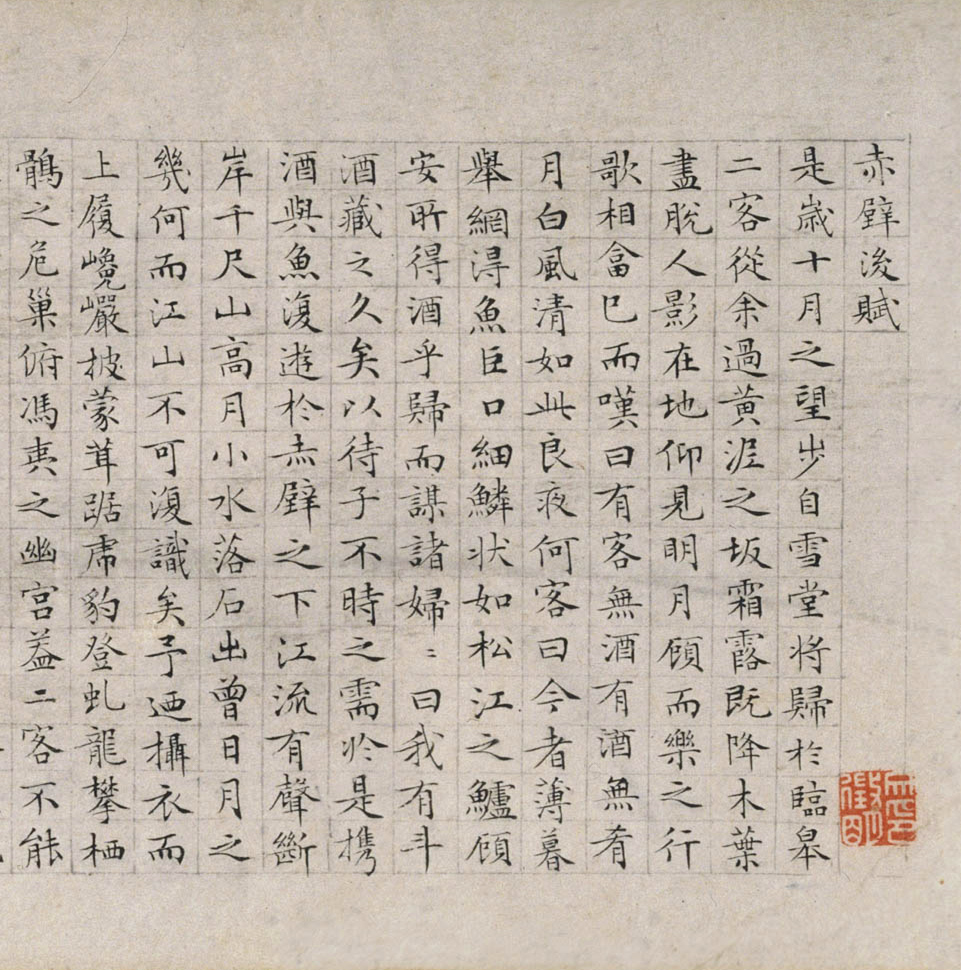 赤壁後賦
是歲十月之望步自雪堂將歸於臨皋
二客從余過黃泥之坂霜露既降木葉
盡脫人影在地仰見明月顧而樂之行
歌相畣已而嘆曰有客無酒有酒無肴
月白風清如此良夜何客曰今者薄暮
舉網得魚巨口細鱗狀如松江之鱸顧
安所得酒乎歸而謀諸婦〻曰我有斗
酒藏之久矣以待子不時之需於是攜
酒與魚復遊於赤壁之下江流有聲斷
岸千尺山高月小水落石出曾日月之
幾何而江山不可復識矣予迺攝衣而
上履巉巖披蒙茸踞虎豹登虬龍攀栖
鶻之危巢俯馮夷之幽宮蓋二客不能